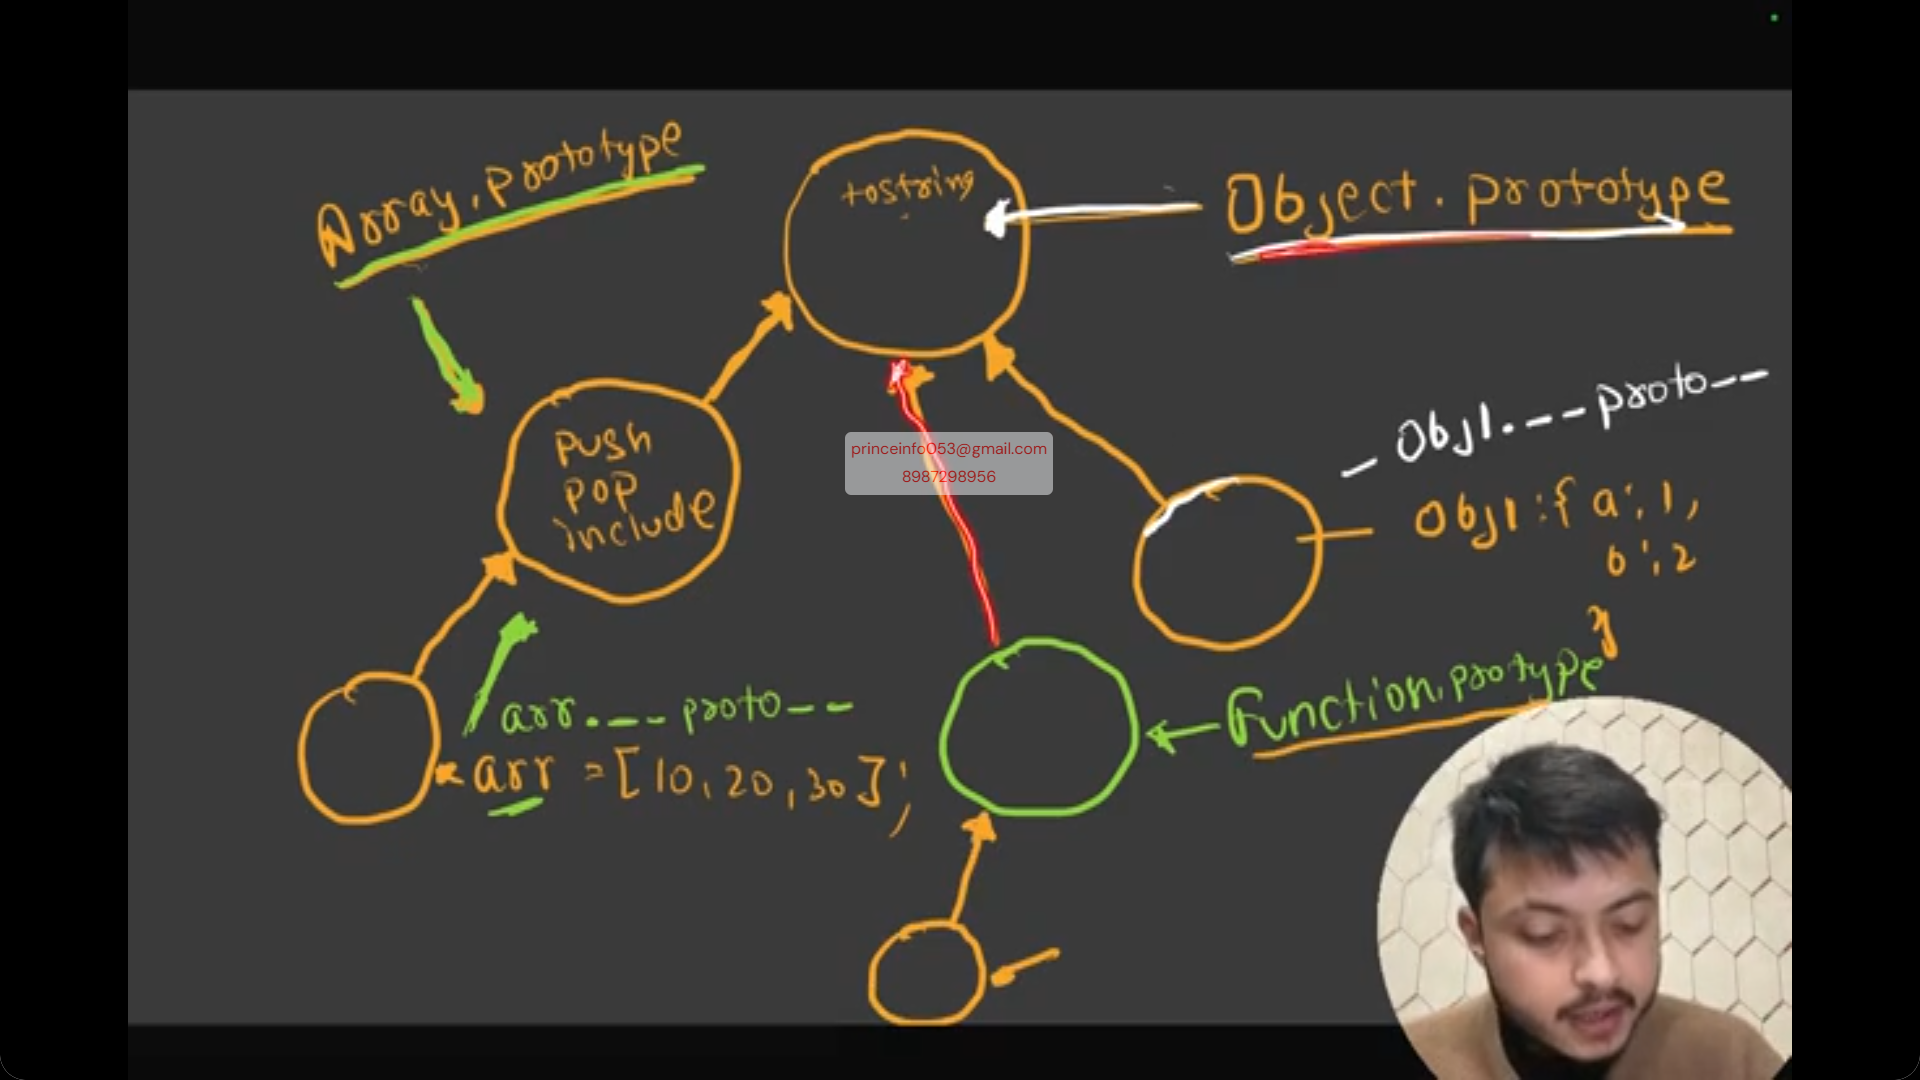 Array.prototype
tostring
Object.prototype
push
pop
include
princeinfo053@gmail.com
8987298956
Obj1.---proto--
Obj1:{ a:1,
b:2
}
arr.---proto--
arr = [10,20,30];
Function.protype